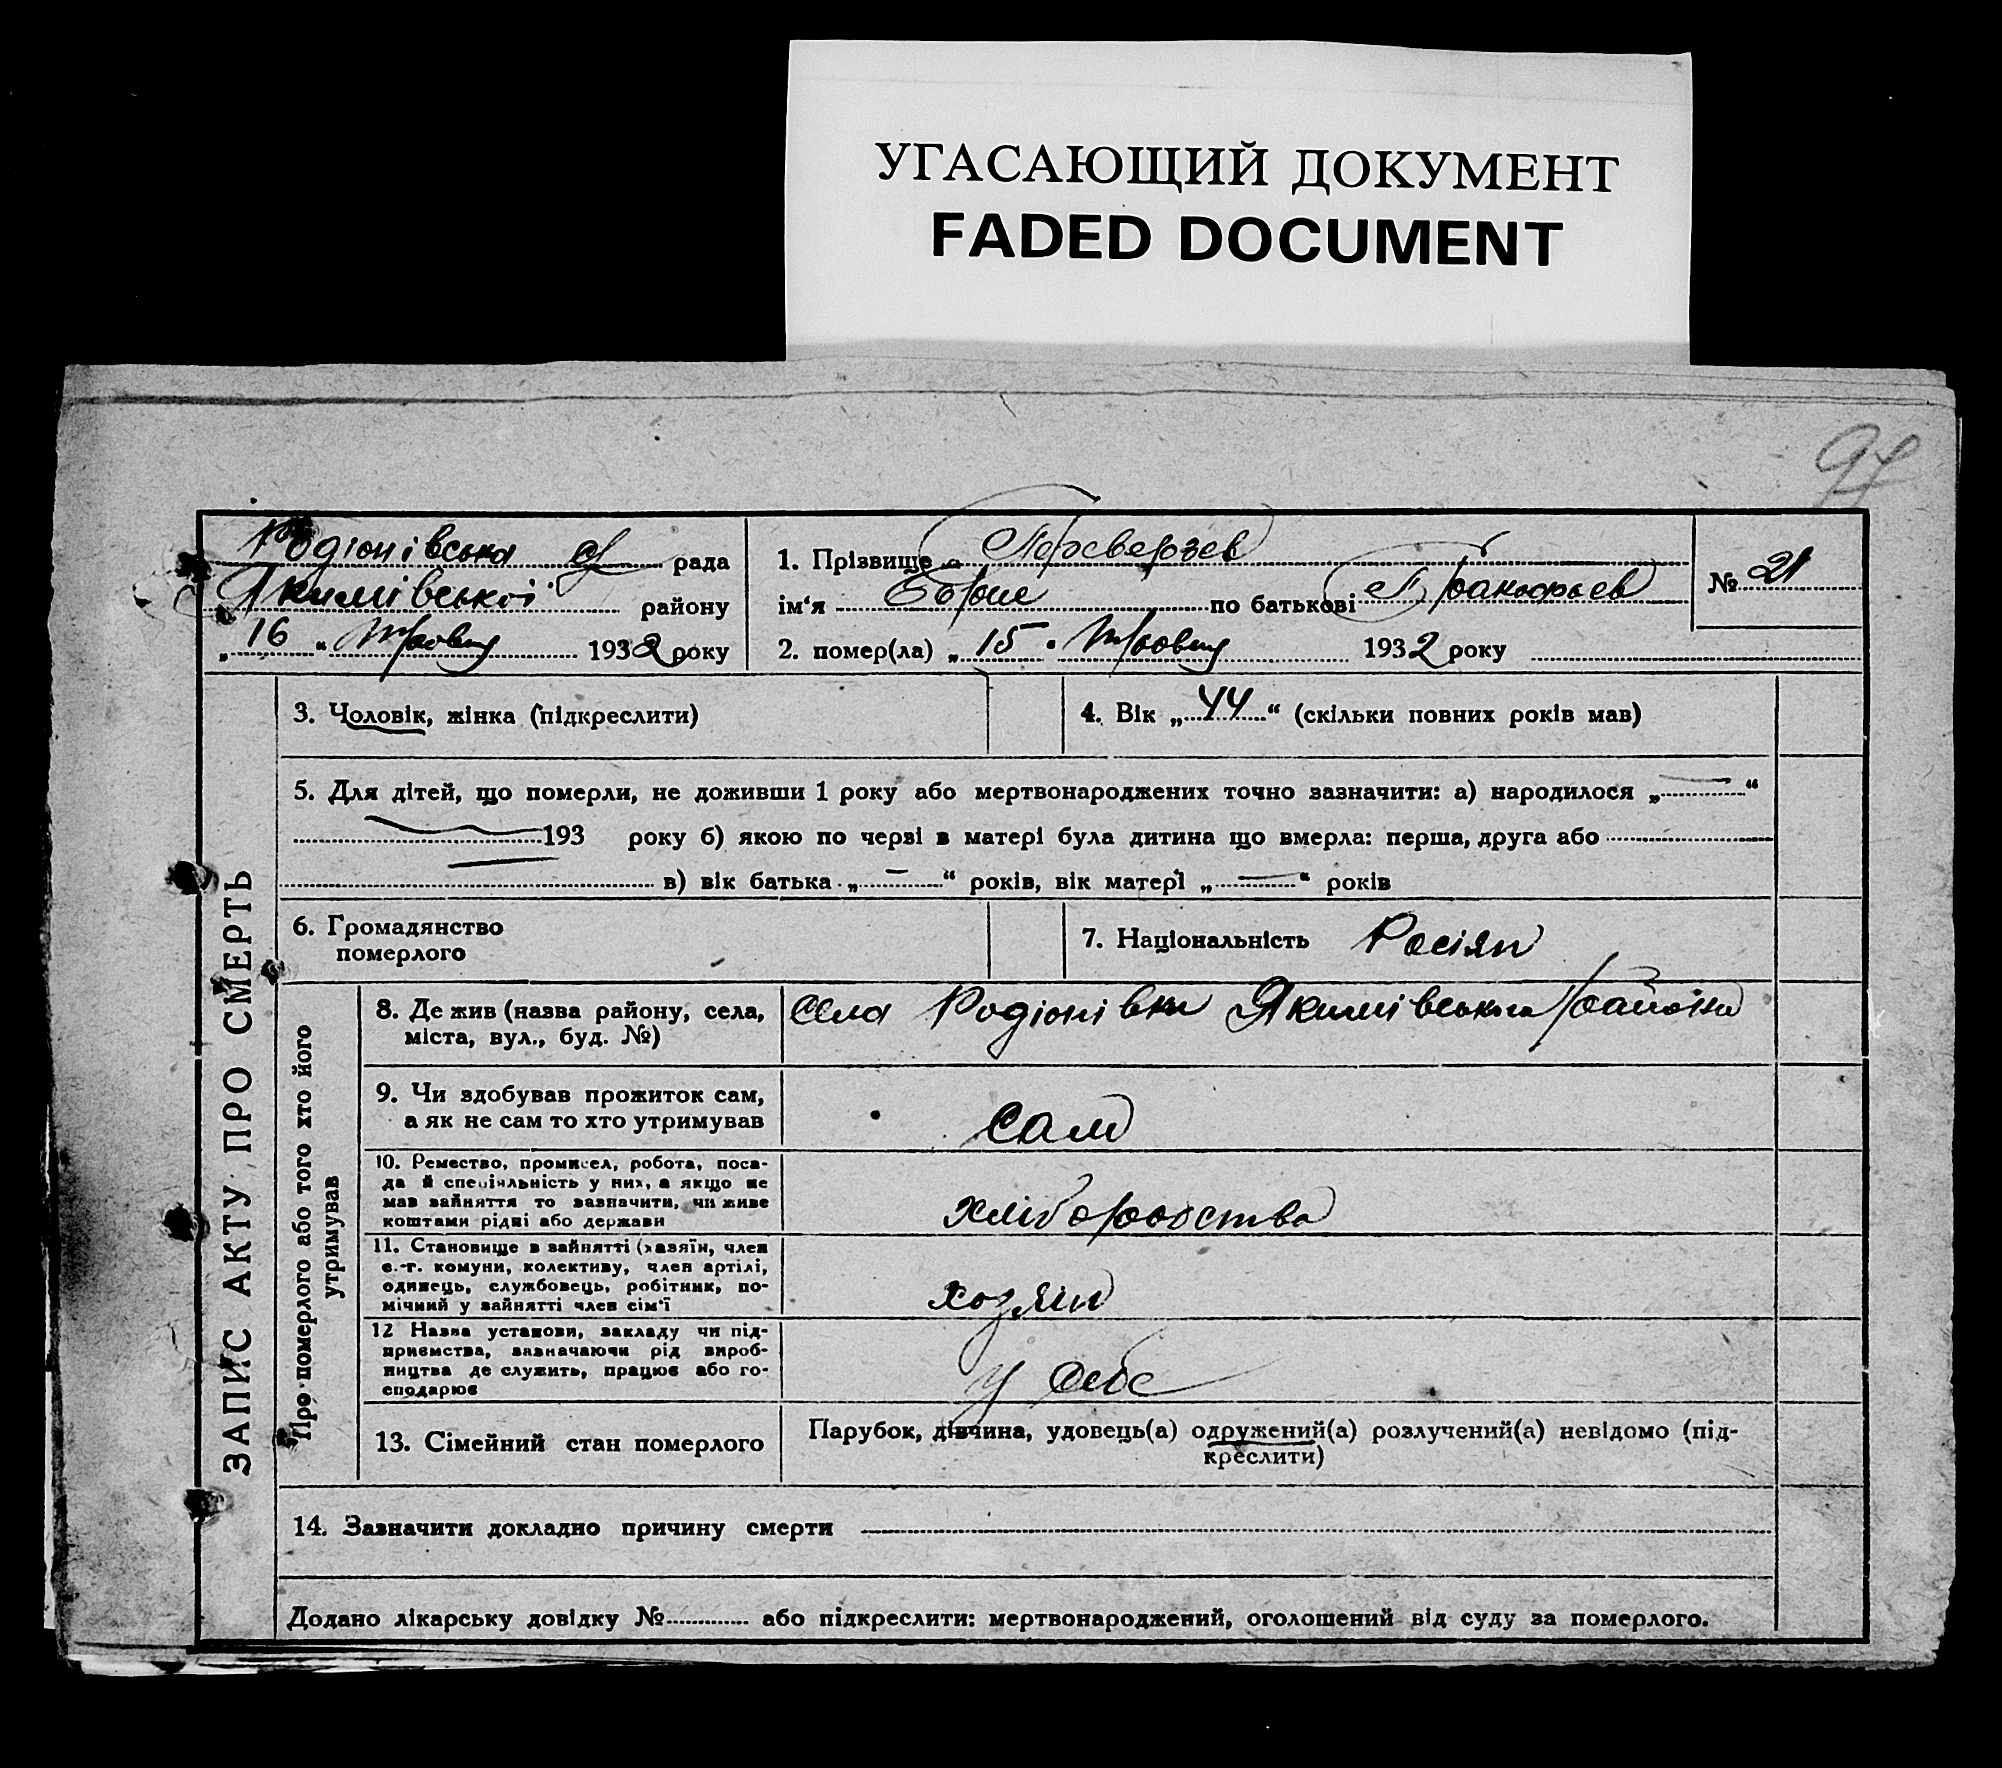 УГАСАЮЩИЙ ДОКУМЕНТ
FADED DOCUMENT
97
Родіонівська с/ рада
Якимівської району
„ 16 “ Травня 1932 року
1. Прізвище Переверзев
ім‘я Борис по батькові Пракофьев
2. помер(ла) „ 15 “ Травня 1932 року
№ 21
ЗАПИС АКТУ ПРО СМЕРТЬ
3. Чоловік, жінка (підкреслити)
4. Вік „ 44 “ (скільки повних років мав)
5. Для дітей, що померли, не доживши 1 року або мертвонароджених точно зазначити: а) народилося „ — “
193 року б) якою по черві в матері була дитина що вмерла: перша, друга або
в) вік батька „ — “ років, вік матері „ — “ років
6. Громадянство
померлого
7. Національність Росіян
Про померлого або того хто його
утримував
8. Де жив (назва району, села,
міста, вул., буд. №)
села Родіонівки Якимівського району
9. Чи здобував прожиток сам,
а як не сам то хто утримував
сам
10. Ремество, промисел, робота, поса-
да й спеціяльність у них, а якщо не
мав зайняття то зазначити, чи живе
коштами рідні або держави
хліборобства
11. Становище в зайнятті (хазяїн, член
с.-г. комуни, колективу, член артілі,
одинець, службовець, робітник, по-
мічний у зайнятті член сім‘ї
хозяин
12 Назва установи, закладу чи під-
приємства, зазначаючи рід вироб-
ництва де служить, працює або го-
сподарює
у себе
13. Сімейний стан померлого
Парубок, дівчина, удовець(а) одружений(а) розлучений(а) невідомо (під-
креслити)
14. Зазначити докладно причину смерти
Додано лікарську довідку № або підкреслити: мертвонароджений, оголошений від суду за померлого.